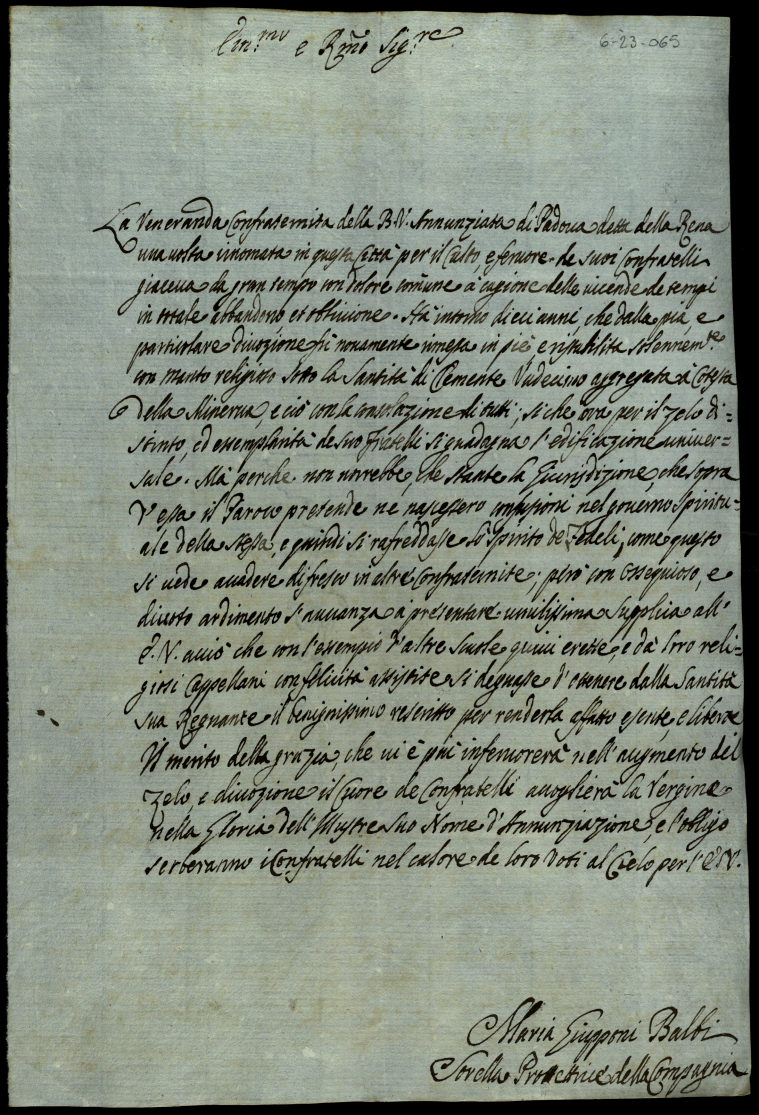 Em.mo e Rmo Sig.re
6-23-065
La Veneranda Confraternita della B.V. Annunziata di Padova detta della Rena
una volta rinomata in questa Città per il Culto, e fervore de suoi Confratelli
giaceva da gran tempo con dolore comune à cagione delle vicende de tempi
in totale abbandono et oblivione. Hà intorno dieci anni, che dalla pia, e
particolare divozione fù novamente rimessa in piè, e ristabilita solennem.te
con manto religioso sotto la Santità di Clemente Undecimo aggregata à Cotesta
della Minerva, e ciò con la consolazione di tutti; si che ora per il zelo di=
stinto, ed essemplarità de suoi Fratelli si guadagna l'edificazione univer=
sale. Mà perche non vorrebbe, che stante la Giurisdizione, che sopra
d'essa il Paroco pretende ne nascessero confusioni nel governo spiritu=
ale della stessa, e quindi si rafreddasse lo spirito de Fedeli, come questo
si vede accadere di fresco in altre Confraternite; però con ossequioso, e
divoto ardimento s'avvanza à presentare umilissima supplica all'
E.V. acciò che con l'essempio d'altre Scuole quivi erette, e dà loro reli=
giosi Cappellani con felicità assistite si degnasse d'ottenere dalla Santità
sua Regnante il benignissimo rescritto per renderla affatto esente, e libera
Il merito della grazia, che vi è più infervorerà nell'augmento del
zelo, e divozione il Cuore de Confratelli accoglierà la Vergine
nella Gloria dell'Illustre suo Nome d'Annunziazione, e l'obligo
serberanno i Confratelli nel calore de loro Voti al Cielo per l'E.V.
Maria Giupponi Balbi
Sorella Protetrice della Compagnia